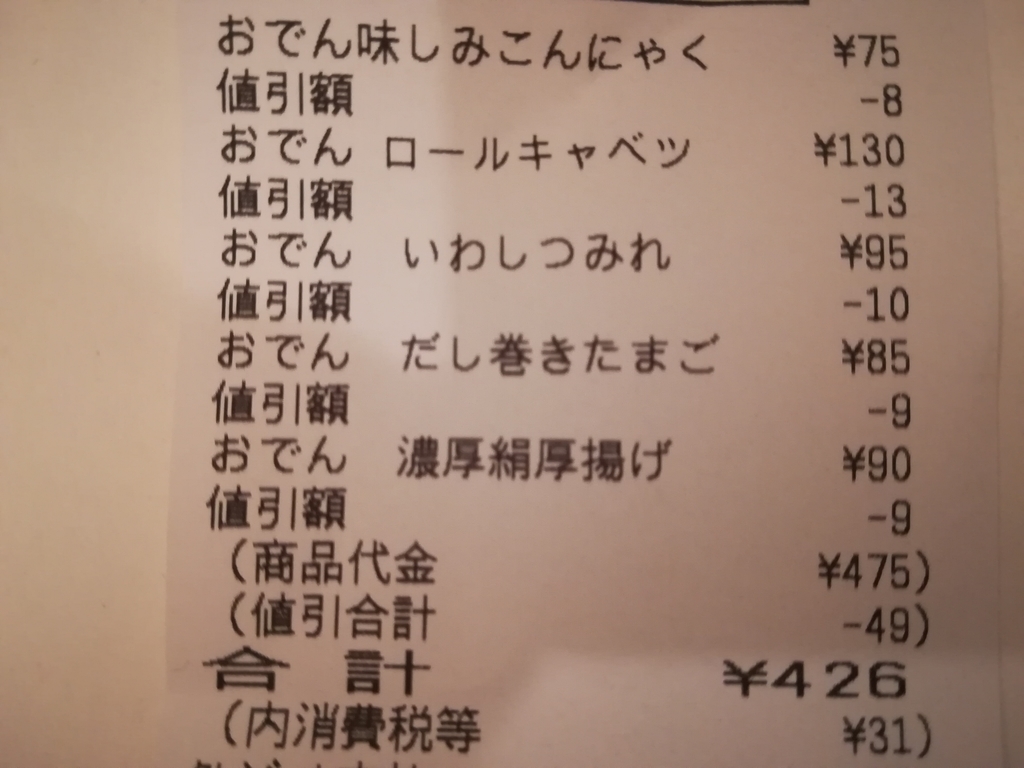 おでん味しみこんにゃく ¥75
値引額 -8
おでん ロールキャベツ ¥130
値引額 -13
おでん いわしつみれ ¥95
値引額 -10
おでん だし巻きたまご ¥85
値引額 -9
おでん 濃厚絹厚揚げ ¥90
値引額 -9
(商品代金 ¥475)
(値引合計 -49)
合 計 ¥426
(内消費税等 ¥31)